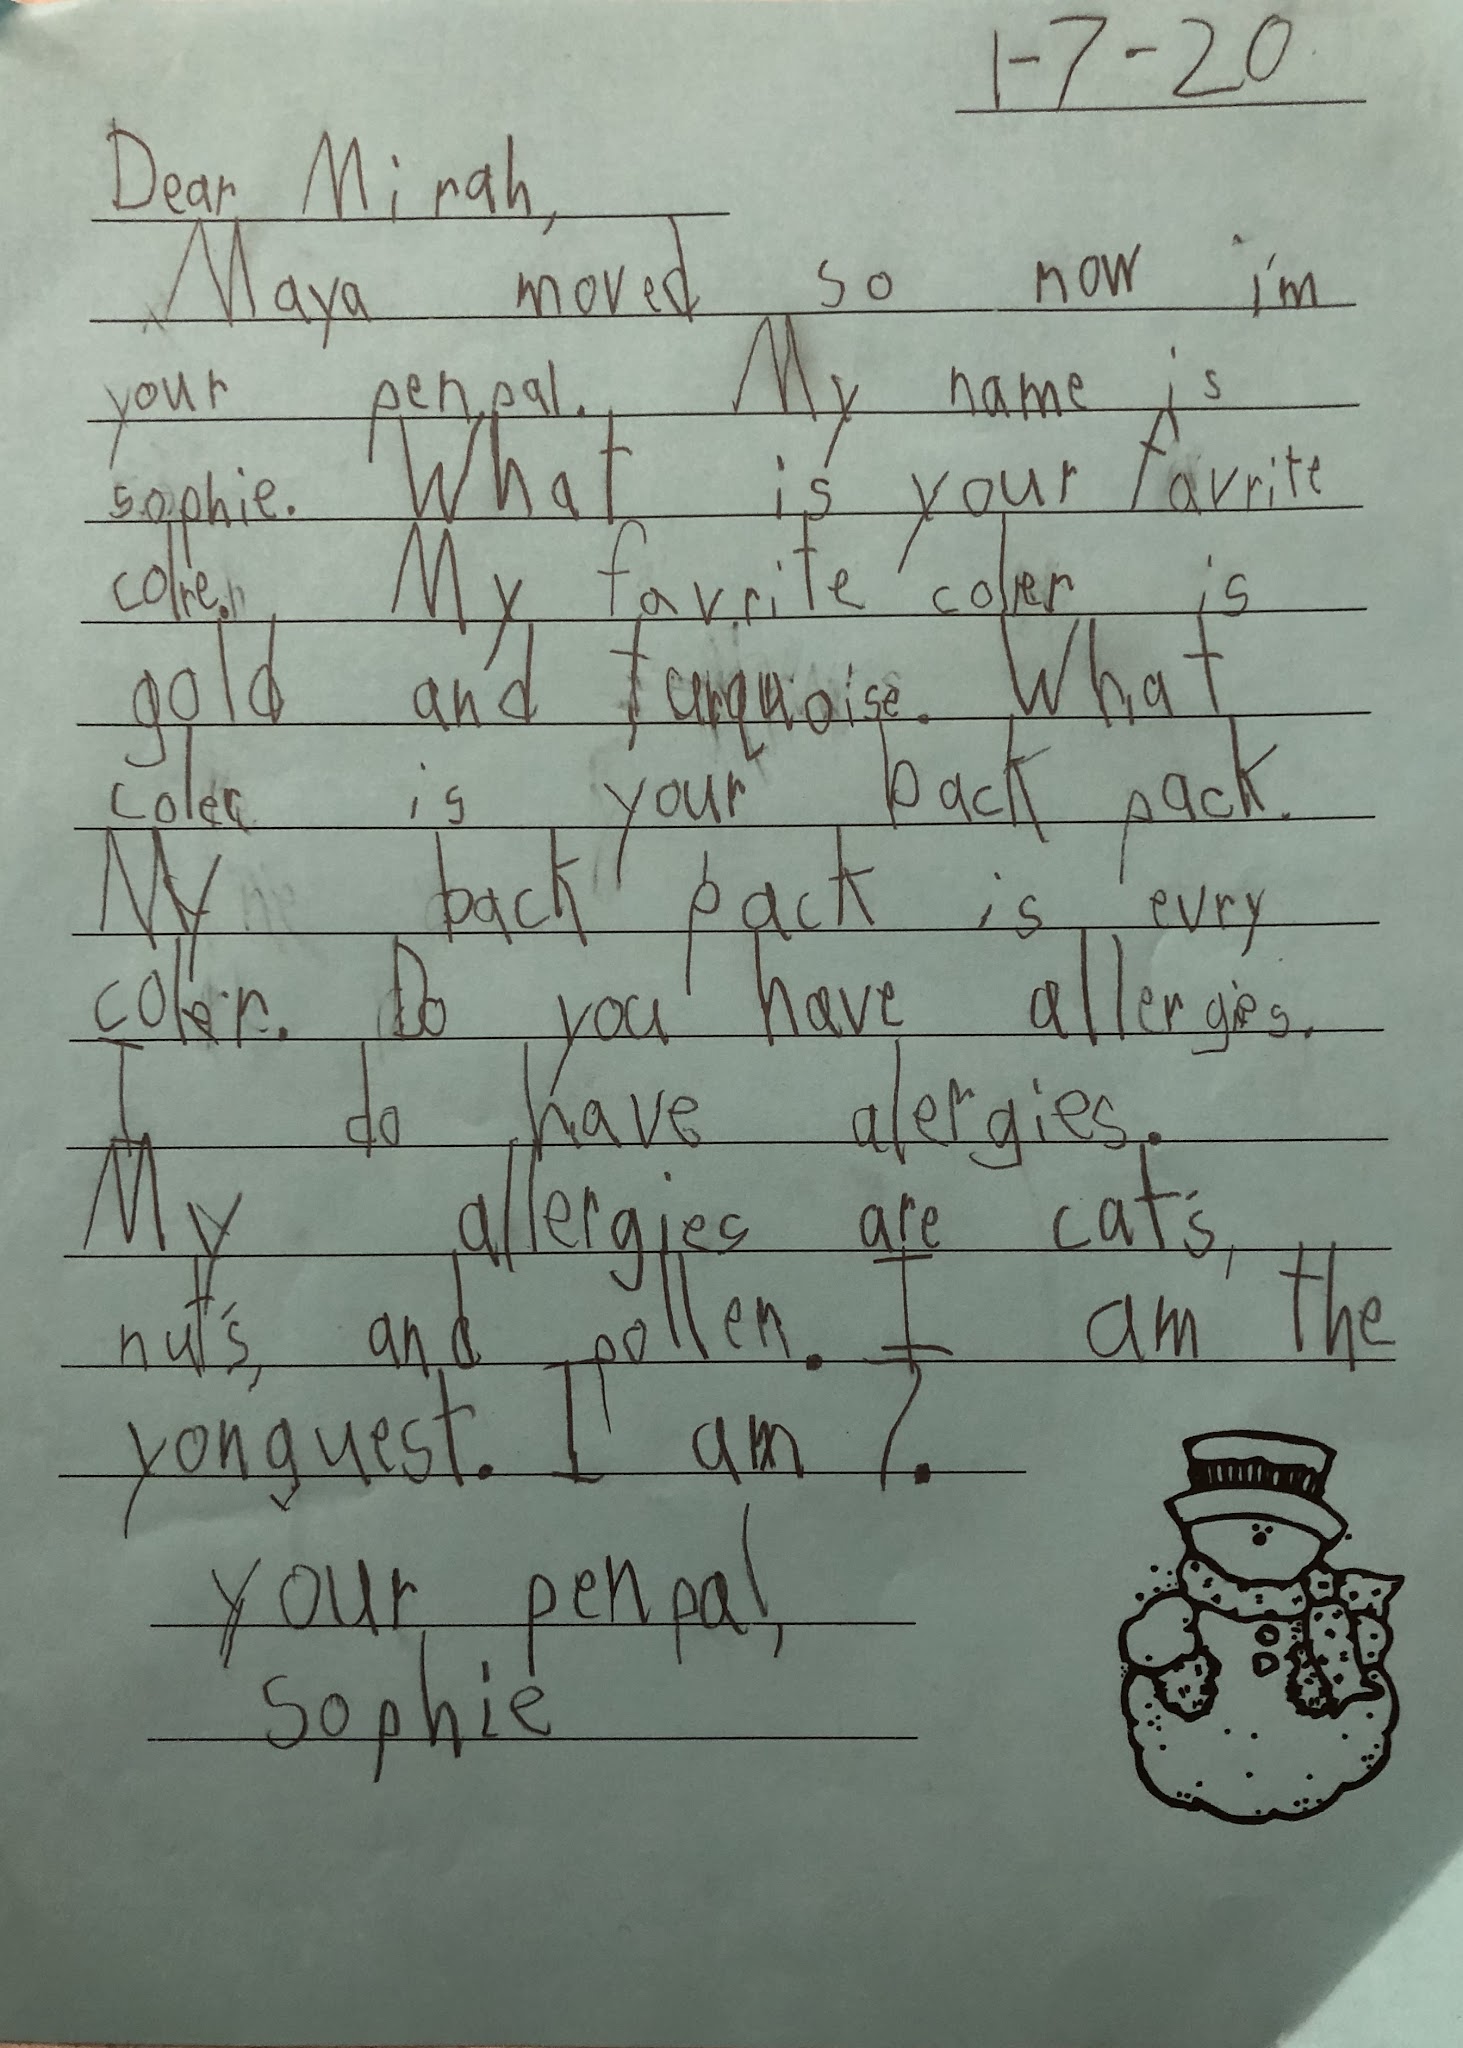 1-7-20
Dear Mirah,
Maya moved so now i'm
your penpal. My name is
sophie. What is your favrite
coler. My favrite coler is
gold and turquoise. What
coler is your back pack.
My back pack is evry
coler. Do you have allergies.
I do have alergies.
My allergies are cat's,
nut's, and pollen. I am the
yonguest. I am 7.
your penpal,
sophie